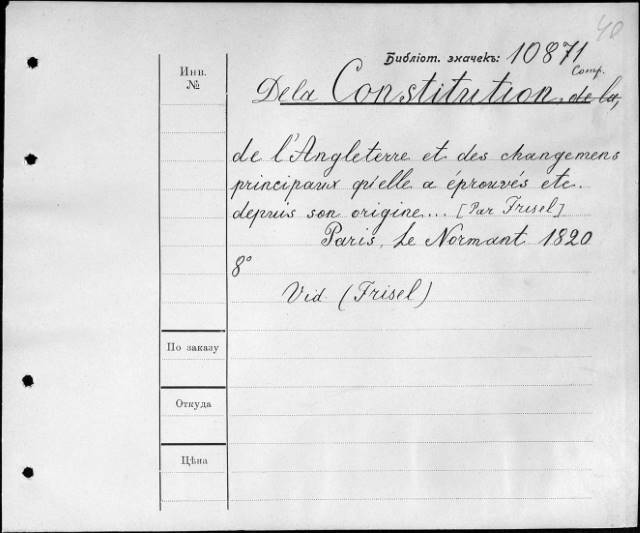 40
Библіот. значекъ: 10871
Comp.
Инв.
№
De la Constitution de la,
de l'Angleterre et des changemens
principaux qu'elle a éprouvés etc.
depuis son origine... [Par Frisel]
Paris, Le Normant 1820
8°
Vid. (Frisel)
По заказу
Откуда
Цѣна